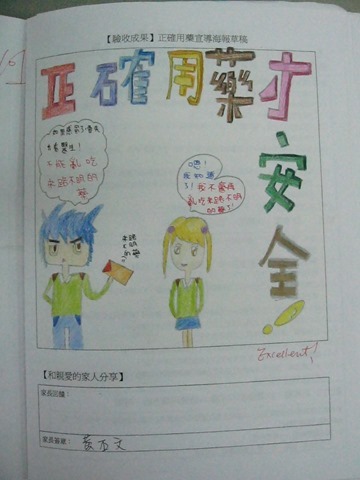 【驗收成果】正確用藥宣導海報草稿
正確用藥才
安全!
如果感冒了要先
去看醫生!
不能亂吃
來路不明的
藥
嗯!
我知道
了!我不會再
亂吃來路不明
的藥了!
來路
不明
的藥
Excellent!
【和親愛的家人分享】
家長回饋:
家長簽章: